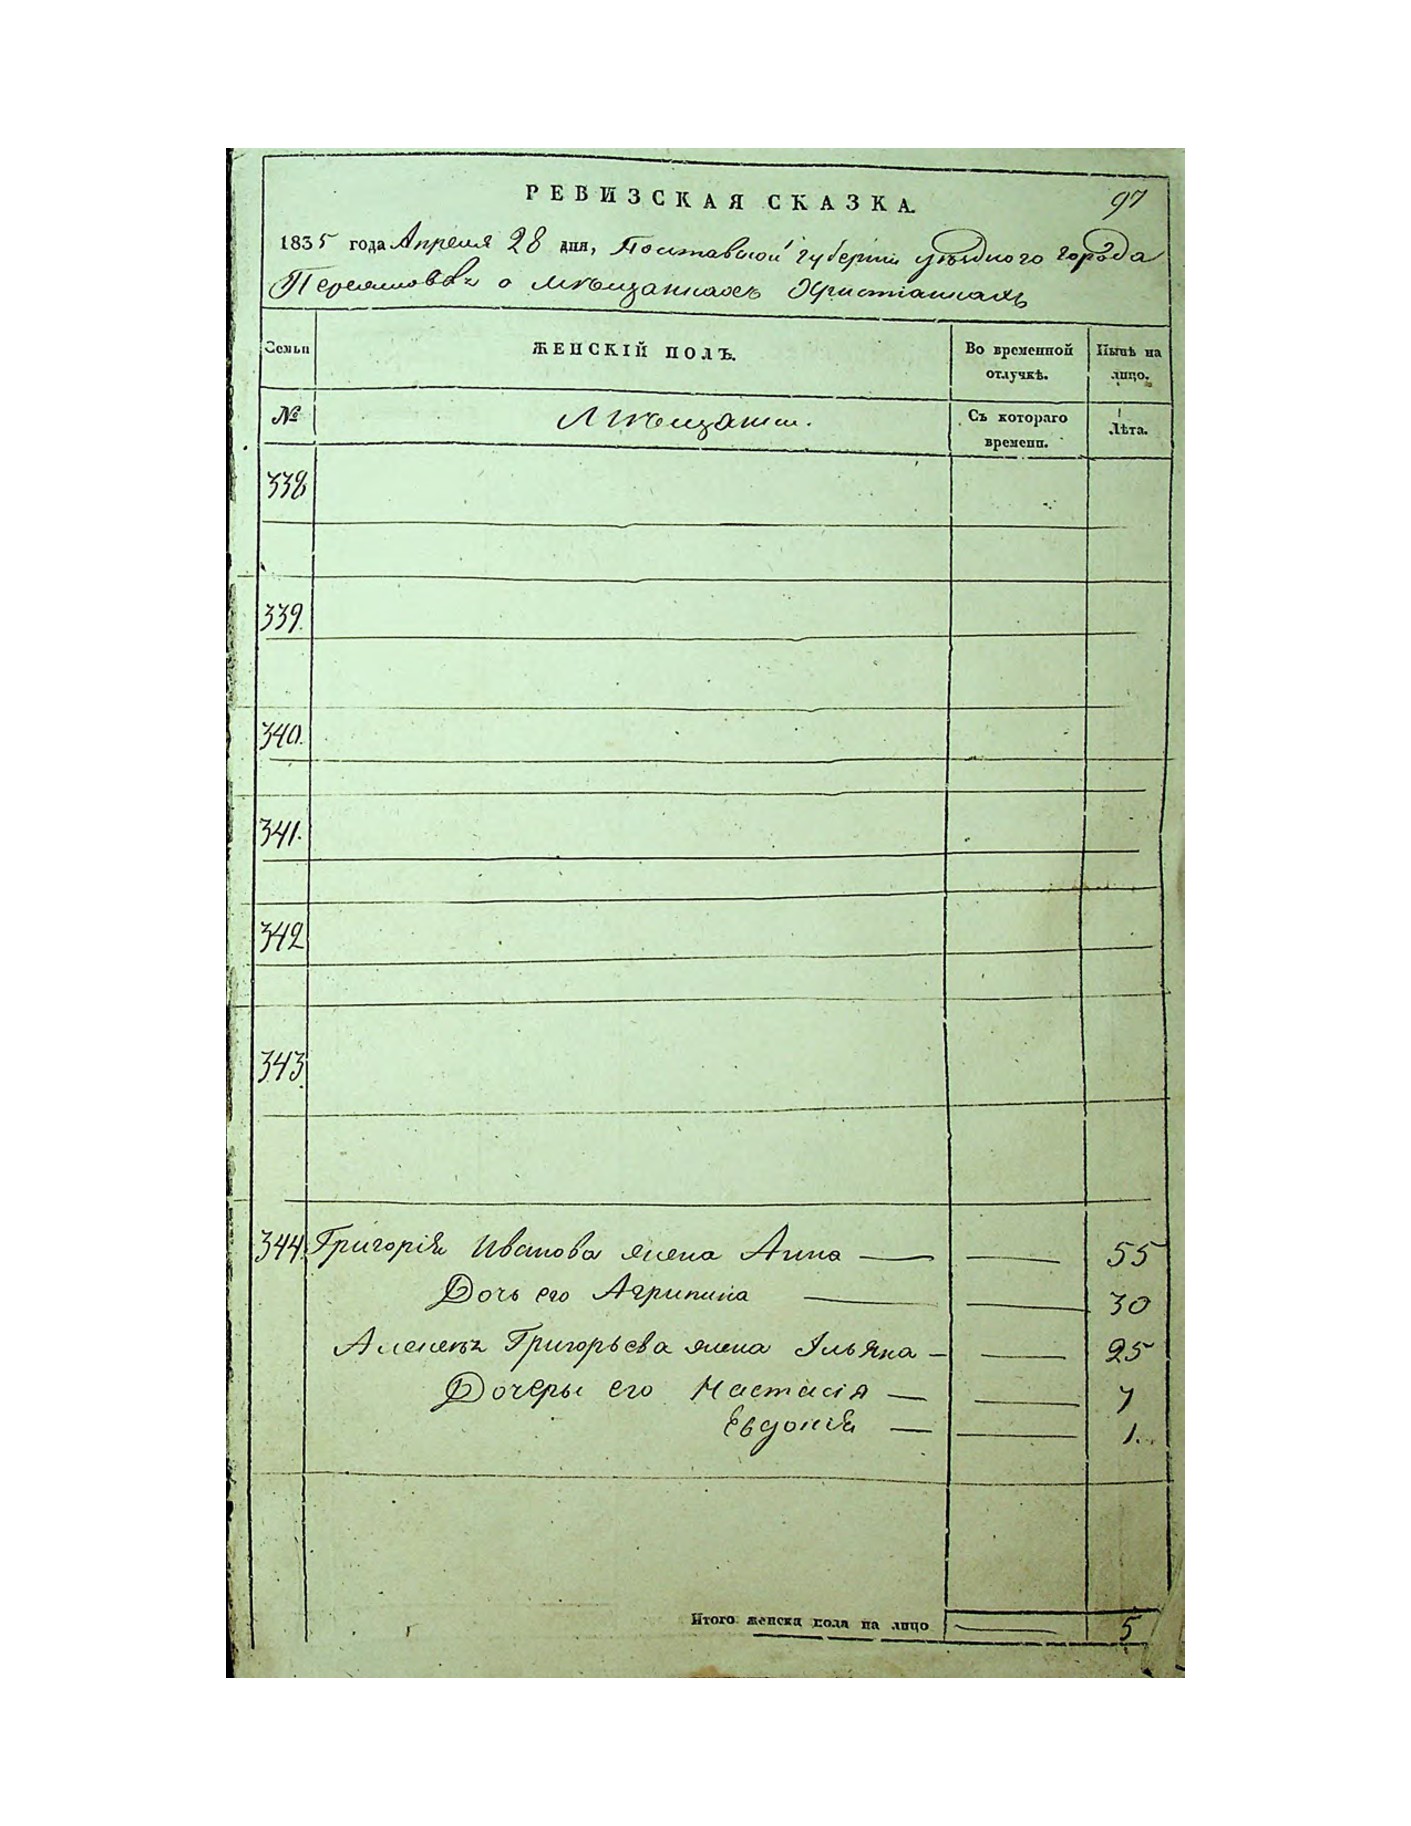 РЕВИЗСКАЯ СКАЗКА.
97
1835 года Апреля 28 дня, Полтавской губерніи уѣзднаго города
Переяслова о мѣщанахъ Христіанахъ
Семьи
ЖЕНСКІЙ ПОЛЪ.
Во временной отлучкѣ.
Нынѣ на лицо.
№
Мѣщане.
Съ котораго времени.
Лѣта.
338
339.
340.
341.
342
343.
344. Григорія Иванова жена Анна — — 55
Дочь его Агрипина — — 30
Григорьева жена Ульяна — — 25
Дочеры его Настасія — — 7
Евдокія — — 1.
Итого женска пола на лицо — 5